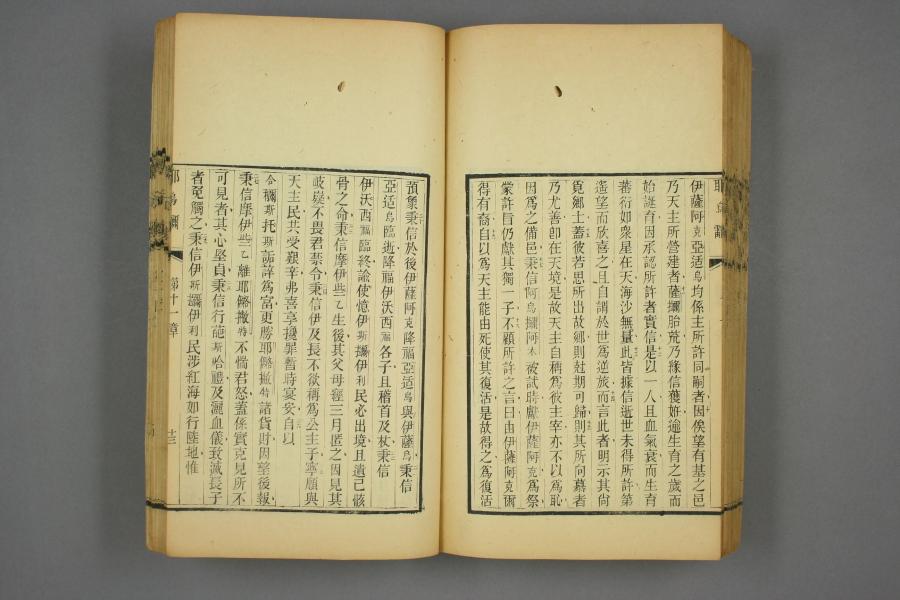 伊薩阿克亞适烏均係主所許同嗣者因俟望有基之邑
乃天主所營建者薩爾胎荒乃緣信獲姙逾生育之歲而
始誕育因承認所許者實信是以一人且血氣衰而生育
蕃衍如衆星在天海沙無量此皆據信逝世未得所許第
遙望而欣喜之且自謂於世為逆旅而言此者明示其尙
覓鄉土蓋彼若思所出故鄉則尅期可歸則其所向慕者
乃尤善卽在天境是故天主自稱為彼主宰亦不以為恥
因為之備邑秉信阿烏拉阿木被試時獻伊薩阿克為祭
業許旨仍獻其獨一子不顧所許之言曰由伊薩阿克爾
得有裔自以為天主能由死使其復活是故得之為復活
預象秉信於後伊薩阿克降福亞适烏與伊薩烏秉信
亞适烏臨逝降福伊沃西福各子且稽首及杖秉信
伊沃西福臨終諭使憶伊斯爾伊利民必出境且遺己骸
骨之命秉信摩伊些乙生後其父母經三月匿之因見其
岐嶷不畏君禁令秉信伊及長不欲稱為公主子寧願與
天主民共受艱辛弗喜享擾罪暫時宴安自以
合斯托斯詬誶為富更勝耶撤特諸貨財因望後報
秉信摩伊些乙離耶撤特不惴君怒蓋係實克見所不
可見者其心堅貞秉信行葩斯哈禮及灑血儀致滅長子
者免觸之秉信伊斯爾伊利民涉紅海如行陸地惟
第十一章